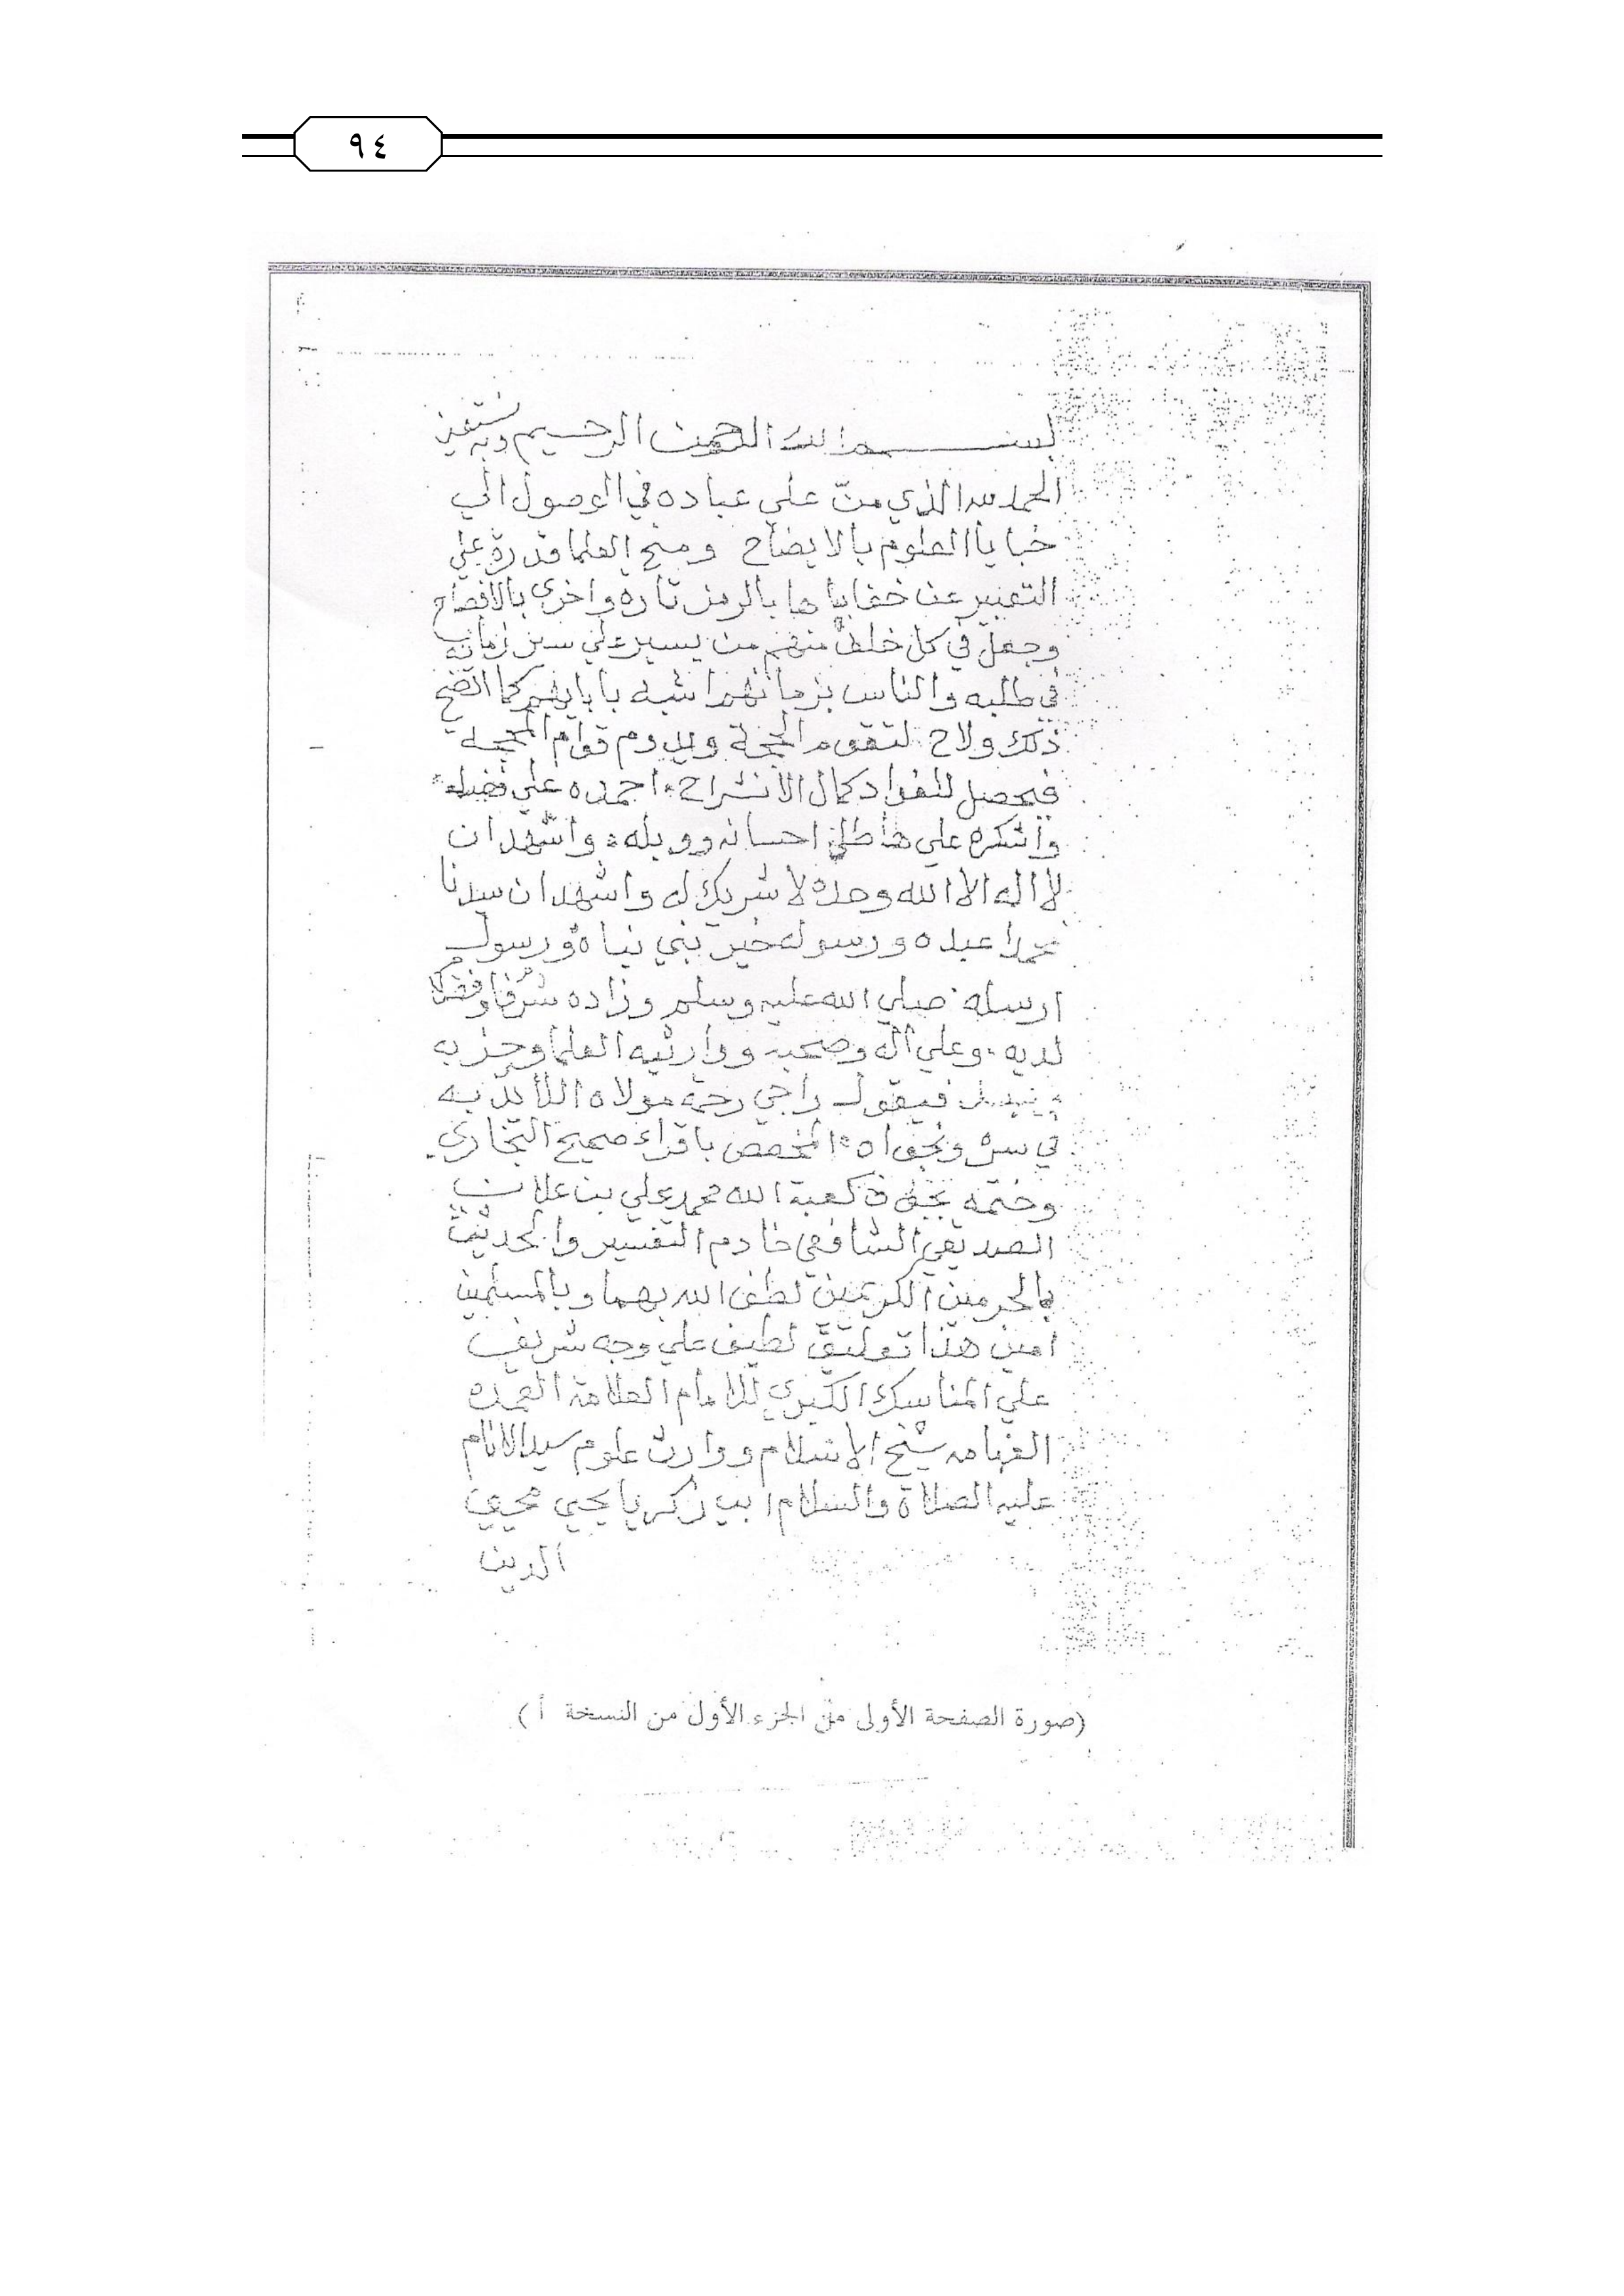 ٩٤
بسم الله الرحمن الرحيم وبه نستعين
الحمد لله الذي منّ علي عباده في الوصول الي
خبايا العلوم بالايضاح ومنح العلما قدرة علي
التعبير عن خفاياها بالرمز تاره واخري بالافصاح
وجعل في كل خلف منهم من يسير علي سنن زمانه
في طلبه والناس بزمانهم اشبه بابايهم كما اتضح
ذلك ولاح لتقوم الحجة ويدوم قوام المحجه
فيحصل للفواد كمال الانشراح احمده علي فضله
واشكره علي هاطل احسانه ووبله واشهد ان
لا اله الا الله وحده لا شريك له واشهد ان سيدنا
محمدا عبده ورسوله خير نبي نباه ورسول
ارسله صلي الله عليه وسلم وزاده شرفا وفضلا
لديه وعلي اله وصحبه ووارثيه العلما وحزبه
فيقول راجي رحمة مولاه اللائذ به
في سره ونجواه المخصص باقراء صحيح البخاري
وختمه بجوف كعبة الله محمد علي بن علان
الصديقي الشافعي خادم التفسير والحديث
بالحرمين الكريمين لطف الله بهما وبالمسلمين
امين هذا تعليق لطيف علي وجه شريف
علي المناسك الكبري للامام العلامة العمده
الفهامه شيخ الاسلام ووارث علوم سيد الانام
عليه الصلاة والسلام ابي زكريا يحيي محيي
الدين
(صورة الصفحة الأولى من الجزء الأول من النسخة أ )